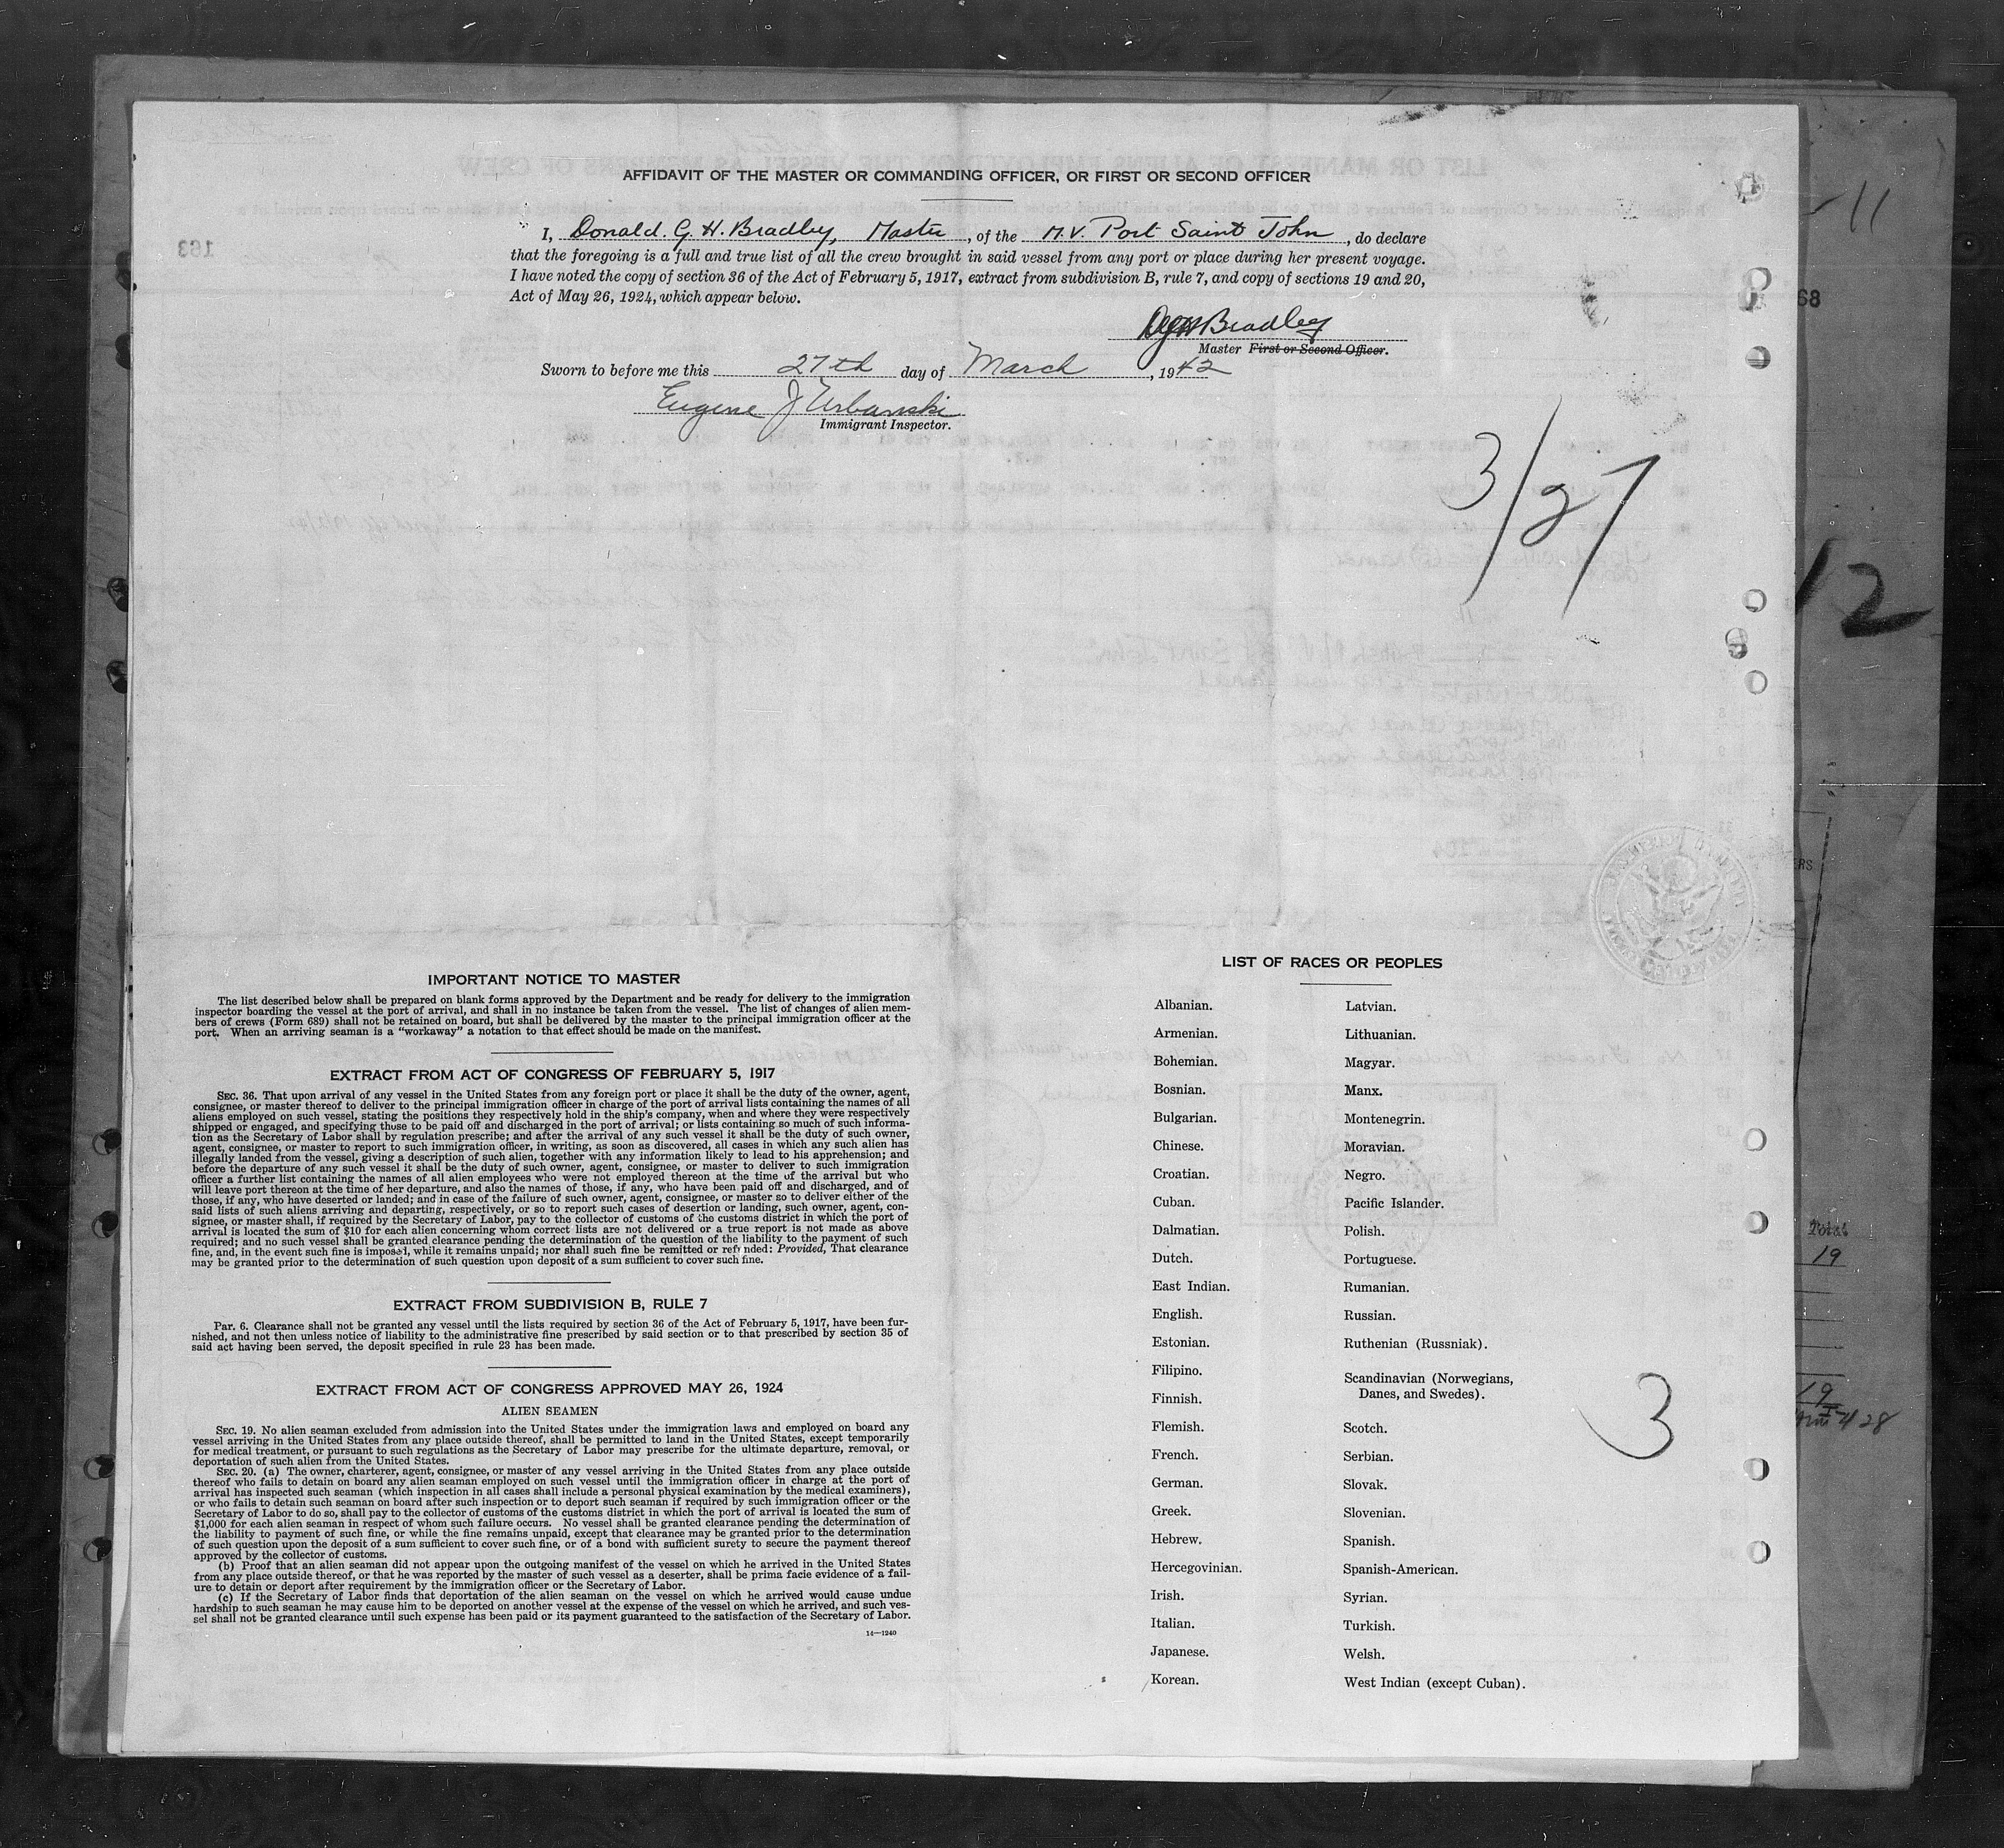 AFFIDAVIT OF THE MASTER OR COMMANDING OFFICER, OR FIRST OR SECOND OFFICER
I, Donald. G. H. Bradley, Master, of the M.V. Port Saint John, do declare
that the foregoing is a full and true list of all the crew brought in said vessel from any port or place during her present voyage.
I have noted the copy of section 36 of the Act of February 5, 1917, extract from subdivision B, rule 7, and copy of sections 19 and 20,
Act of May 26, 1924, which appear below.
DGH Bradley
Master First or Second Officer.
Sworn to before me this 27th day of March, 1942
Eugene J Urbanski
Immigrant Inspector.
3/27
11
68
12
IMPORTANT NOTICE TO MASTER
The list described below shall be prepared on blank forms approved by the Department and be ready for delivery to the immigration
inspector boarding the vessel at the port of arrival, and shall in no instance be taken from the vessel. The list of changes of alien mem-
bers of crews (Form 689) shall not be retained on board, but shall be delivered by the master to the principal immigration officer at the
port. When an arriving seaman is a "workaway" a notation to that effect should be made on the manifest.
EXTRACT FROM ACT OF CONGRESS OF FEBRUARY 5, 1917
SEC. 36. That upon arrival of any vessel in the United States from any foreign port or place it shall be the duty of the owner, agent,
consignee, or master thereof to deliver to the principal immigration officer in charge of the port of arrival lists containing the names of all
aliens employed on such vessel, stating the positions they respectively hold in the ship's company, when and where they were respectively
shipped or engaged, and specifying those to be paid off and discharged in the port of arrival; or lists containing so much of such informa-
tion as the Secretary of Labor shall by regulation prescribe; and after the arrival of any such vessel it shall be the duty of such owner,
agent, consignee, or master to report to such immigration officer, in writing, as soon as discovered, all cases in which any such alien has
illegally landed from the vessel, giving a description of such alien, together with any information likely to lead to his apprehension; and
before the departure of any such vessel it shall be the duty of such owner, agent, consignee, or master to deliver to such immigration
officer a further list containing the names of all alien employees who were not employed thereon at the time of the arrival but who
will leave port thereon at the time of her departure, and also the names of those, if any, who have been paid off and discharged, and of
those, if any, who have deserted or landed; and in case of the failure of such owner, agent, consignee, or master so to deliver either of the
said lists of such aliens arriving and departing, respectively, or so to report such cases of desertion or landing, such owner, agent, con-
signee, or master shall, if required by the Secretary of Labor, pay to the collector of customs of the customs district in which the port of
arrival is located the sum of $10 for each alien concerning whom correct lists are not delivered or a true report is not made as above
required; and no such vessel shall be granted clearance pending the determination of the question of the liability to the payment of such
fine, and, in the event such fine is imposed, while it remains unpaid; nor shall such fine be remitted or refunded: Provided, That clearance
may be granted prior to the determination of such question upon deposit of a sum sufficient to cover such fine.
EXTRACT FROM SUBDIVISION B, RULE 7
PAR. 6. Clearance shall not be granted any vessel until the lists required by section 36 of the Act of February 5, 1917, have been fur-
nished, and not then unless notice of liability to the administrative fine prescribed by said section or to that prescribed by section 35 of
said act having been served, the deposit specified in rule 23 has been made.
EXTRACT FROM ACT OF CONGRESS APPROVED MAY 26, 1924
ALIEN SEAMEN
SEC. 19. No alien seaman excluded from admission into the United States under the immigration laws and employed on board any
vessel arriving in the United States from any place outside thereof, shall be permitted to land in the United States, except temporarily
for medical treatment, or pursuant to such regulations as the Secretary of Labor may prescribe for the ultimate departure, removal, or
deportation of such alien from the United States.
SEC. 20. (a) The owner, charterer, agent, consignee, or master of any vessel arriving in the United States from any place outside
thereof who fails to detain on board any alien seaman employed on such vessel until the immigration officer in charge at the port of
arrival has inspected such seaman (which inspection in all cases shall include a personal physical examination by the medical examiners),
or who fails to detain such seaman on board after such inspection or to deport such seaman if required by such immigration officer or the
Secretary of Labor to do so, shall pay to the collector of customs of the customs district in which the port of arrival is located the sum of
$1,000 for each alien seaman in respect of whom such failure occurs. No vessel shall be granted clearance pending the determination of
the liability to payment of such fine, or while the fine remains unpaid, except that clearance may be granted prior to the determination
of such question upon the deposit of a sum sufficient to cover such fine, or of a bond with sufficient surety to secure the payment thereof
approved by the collector of customs.
(b) Proof that an alien seaman did not appear upon the outgoing manifest of the vessel on which he arrived in the United States
from any place outside thereof, or that he was reported by the master of such vessel as a deserter, shall be prima facie evidence of a fail-
ure to detain or deport after requirement by the immigration officer or the Secretary of Labor.
(c) If the Secretary of Labor finds that deportation of the alien seaman on the vessel on which he arrived would cause undue
hardship to such seaman he may cause him to be deported on another vessel at the expense of the vessel on which he arrived, and such ves-
sel shall not be granted clearance until such expense has been paid or its payment guaranteed to the satisfaction of the Secretary of Labor.
14—1240
LIST OF RACES OR PEOPLES
Albanian.
Armenian.
Bohemian.
Bosnian.
Bulgarian.
Chinese.
Croatian.
Cuban.
Dalmatian.
Dutch.
East Indian.
English.
Estonian.
Filipino.
Finnish.
Flemish.
French.
German.
Greek.
Hebrew.
Hercegovinian.
Irish.
Italian.
Japanese.
Korean.
Latvian.
Lithuanian.
Magyar.
Manx.
Montenegrin.
Moravian.
Negro.
Pacific Islander.
Polish.
Portuguese.
Rumanian.
Russian.
Ruthenian (Russniak).
Scandinavian (Norwegians,
Danes, and Swedes).
Scotch.
Serbian.
Slovak.
Slovenian.
Spanish.
Spanish-American.
Syrian.
Turkish.
Welsh.
West Indian (except Cuban).
3
ERS
Total
19
19
28